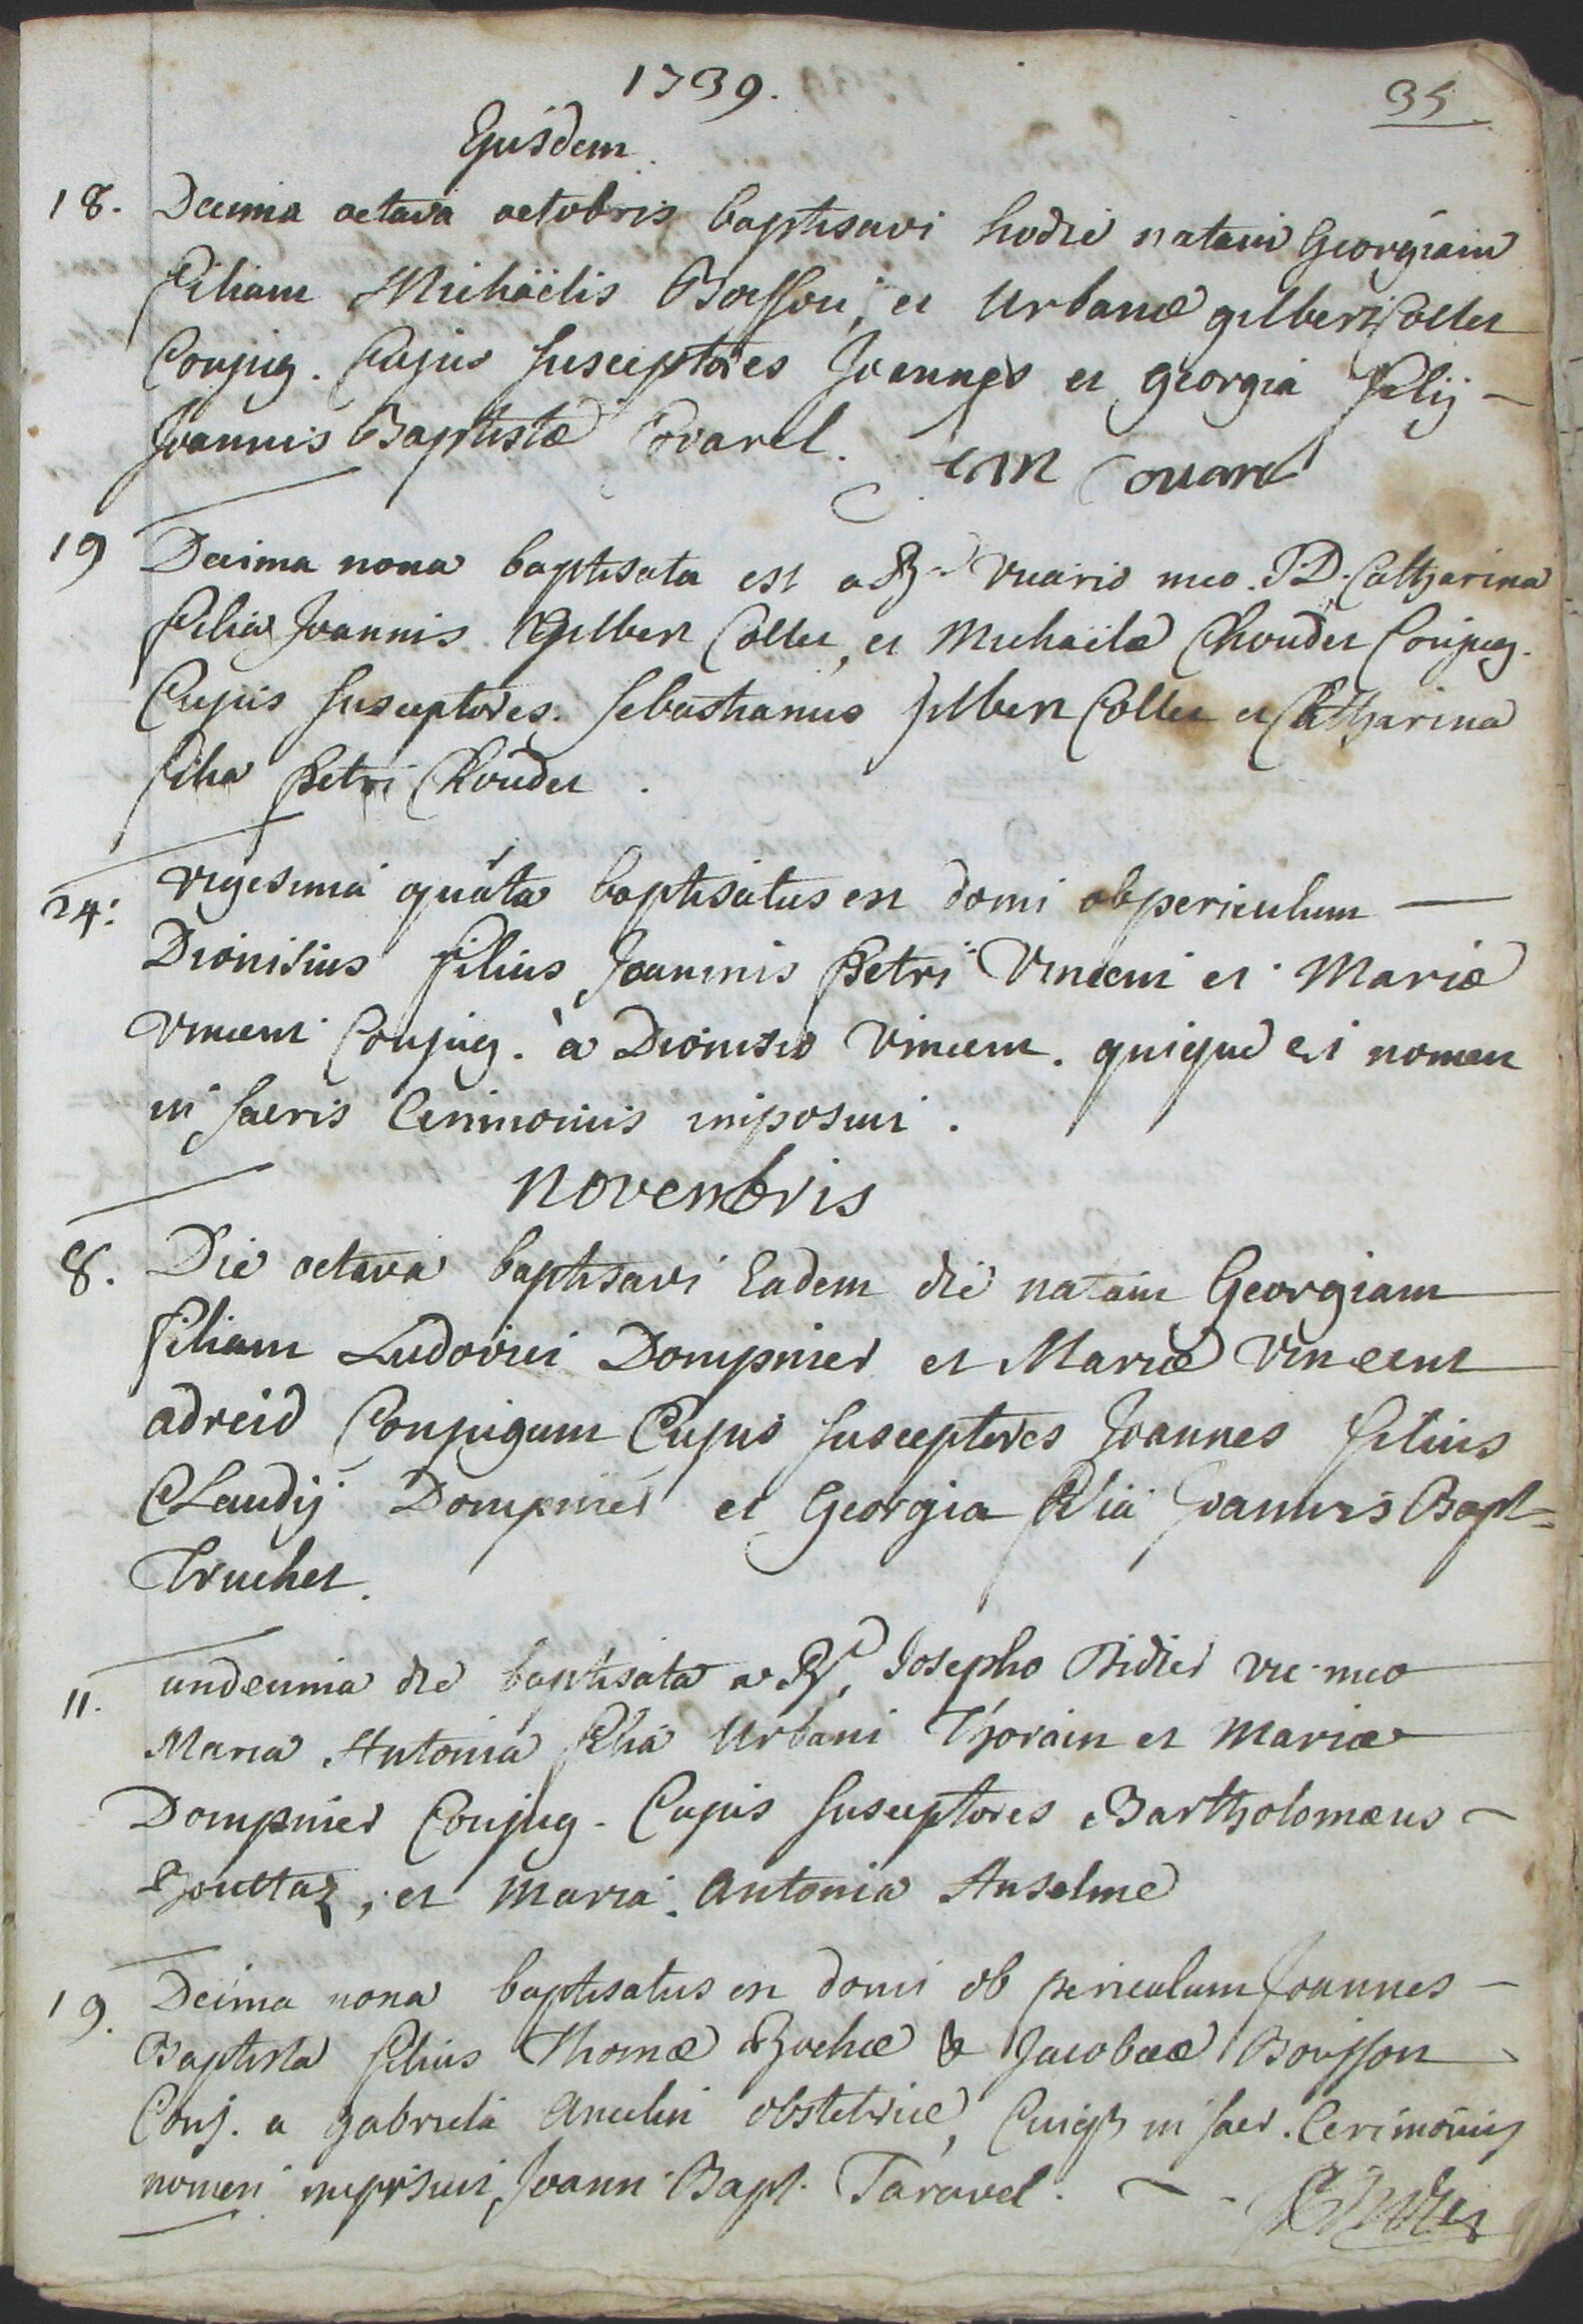 1739.
35
Ejusdem
18. Decima octava octobris baptisavi hodie natam Georgiam
filiam Michaëlis Boisson, et Urbanæ gilbert Collet
Conjug. Cujus susceptores Joannes et georgia filij
Joannis Baptistæ Covarel. Covarel
19 Decima nona baptisata est a Rd vicario meo. Catharina
filia Joannis Gilbert Collet, et Michaëlæ Choudet Conjug.
Cujus susceptores. sebastianus gilbert Collet et Catharina
filia petri Choudet.
24. vigesima quarta baptisatus est domi ob periculum
Dionisius filius Joannis petri Vincent et Mariæ
vincent Conjug. à Dionisio Vincent. quique ei nomen
in sacris Cerimoniis imposuit.
novembris
8. Die octava baptisavi Eadem die natam Georgiam
filiam Ludovici Dompnier et Mariæ Vincent
Conjugum Cujus susceptores Joannes filius
Claudij Dompnier et Georgia filia Joannis Bapt=
Truchet.
11. undecima die baptisata a Rd Josepho Didier vic. meo
Maria Antonia filia Urbani Thorain et Mariæ
Dompnier Conjug. Cujus susceptores Bartholomæus
et Maria Antonia Anselme
19. Decima nona baptisatus est domi ob periculum Joannes
Baptista filius Thomæ Rochæ & Jacobææ Boisson
Conj. a gabriela obstetrice, Cuique in sacr. Cerimoniis
nomen imposuit Joann. Bapt. Taravel.